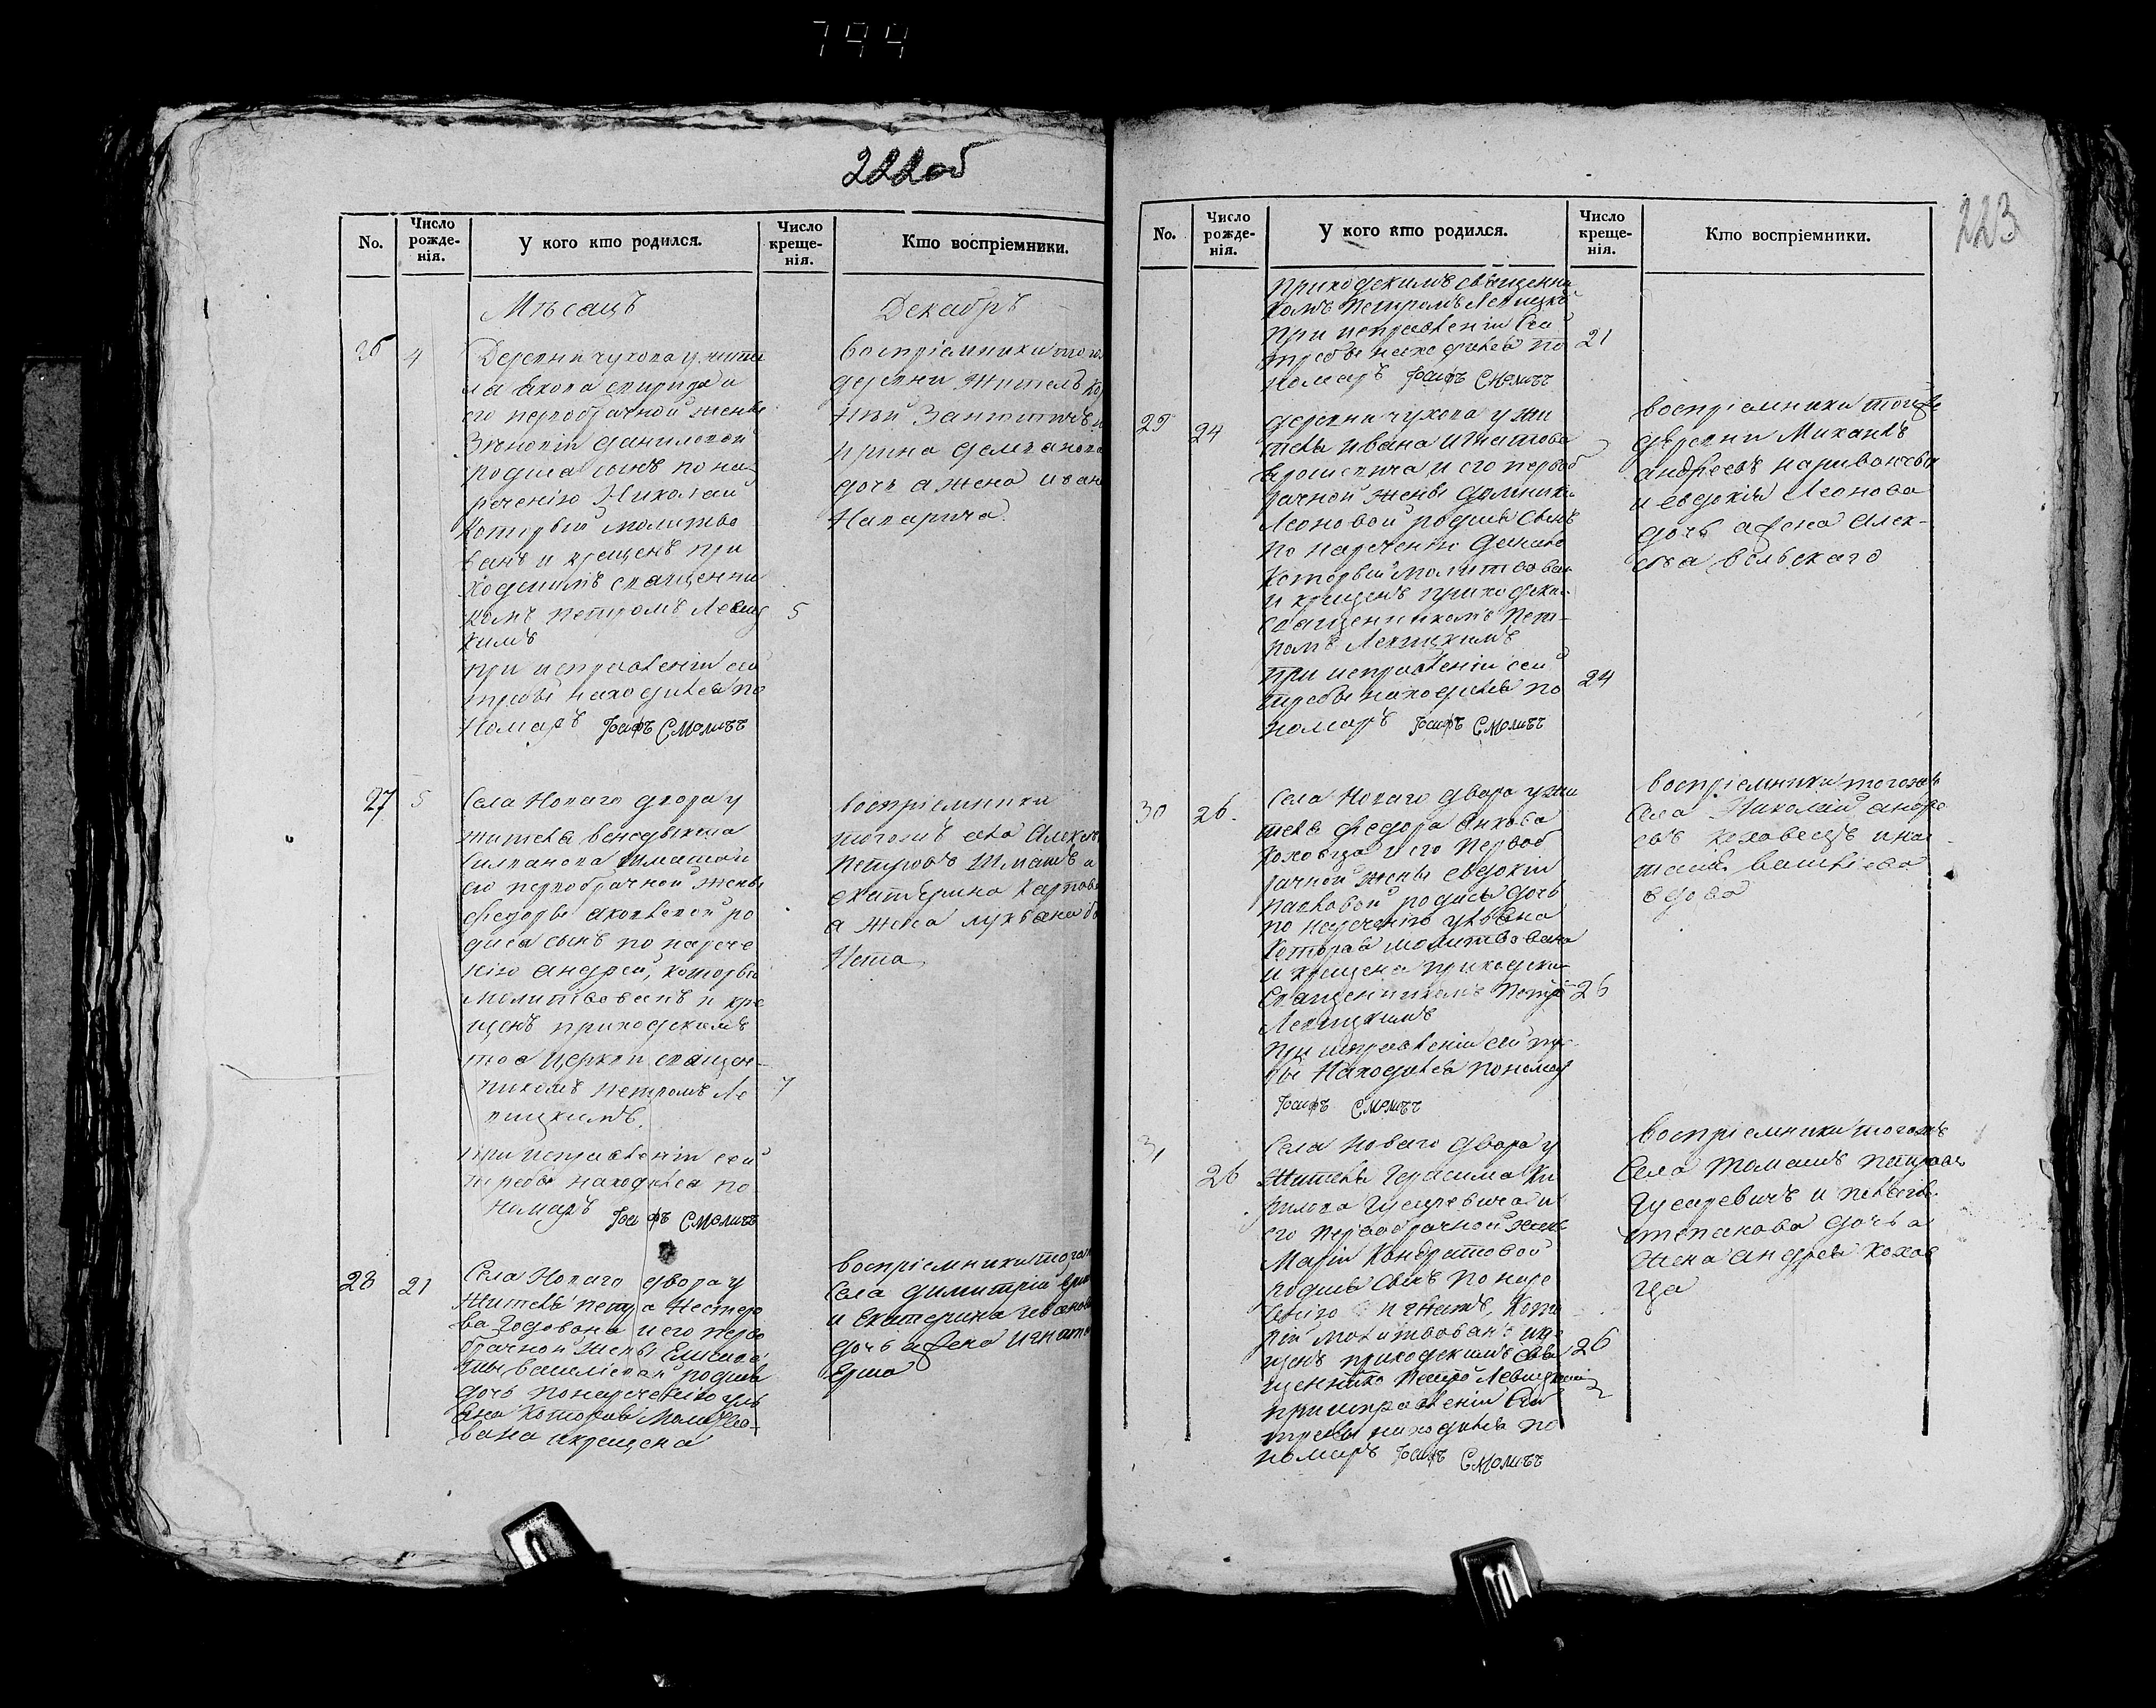 744
222об
No. Число рожденія. У кого кто родился. Число крещенія. Кто воспріемники.
Мѣсяцъ Декабръ
26 4
Деревни чухова у жите
ля Якова спирида и
его первобрачной жены
Зѣновіи даниловой
родися сынъ по на
реченію Николай
который молитво
ванъ и крещенъ при
ходскимъ священни
комъ петромъ Левиц 5
кимъ
при исправленіи сей
требы находился по
номаръ Іосифъ Смоличъ
воспріемники тогожъ
деревни житель
ирина демянова
дочь а жена иван
27 5
Села Новаго двора у
жителя венедыкта
его первобрачной жены
федоры яковлевой ро
дися сынъ по нарече
нію андрей, который
молитвованъ и кре
щенъ приходскимъ
тоя церкви священ-
никомъ петромъ Ле 7
вицкимъ.
при исправленіи сей
требы находился по
номаръ Іосифъ Смоличъ
воспріемники
тогожъ села Алексѣй
петровъ и
екатерина Карпова
а жена
28 21
Села Новаго двора у
жителя петра Нестеро
ва и его перво
брачной жены Елисаве
ты василіевой родися
дочь по нареченію улі
яна которая молитво-
вана и крещена
воспріемники тогожъ
села димитрій
и Екатерина иванова
дочь а жена игнат
Ерша
223
No. Число рожденія. У кого кто родился. Число крещенія. Кто воспріемники.
приходскимъ священни
комъ петромъ Левицки
при исправленіи сей 21
требы находился по
номаръ Іосифъ Смоличъ
29 24
деревни чухова у жи
теля ивана игнатова
и его первоб
рачной жены домникіи
Леоновой родися сынъ
по нареченію
который молитвован
и крещенъ приходским
священникомъ пет-
ромъ Левицкимъ
при исправленіи сей 24
требы находился по
номаръ Іосифъ Смоличъ
воспріемники тоиже
деревни Михаилъ
андреевъ
и евдокія Леонова
дочь а жена алек-
сѣя вольского
30 26.
Села Новаго двора у жи
теля федора
Коховца и его первоб
рачной жены евдокіи
павловой родися дочь
по нареченію уліяна
которая молитвована
и крещена приходским
священникомъ петро 26
Левицкимъ
при исправленіи сей тре
бы находился пономар
Іосифъ Смоличъ
воспріемники тогожъ
села Николай андре
евъ коховецъ и на
талія василіева
вдова
31 26
Села новаго двора у
жителя Герасима Ки
рилова Гусаревича и
его первобрачной жены
Маріи Кондратовой
родися сынъ по наре
ченію игнатъ, кото
рій молитвованъ и кре
щенъ приходскимъ свя 26
щеннико петро Левицким
при исправленіи сей
требы находился по
номаръ Іосифъ Смоличъ
воспріемники тогожъ
села томашъ петровъ
гусаревичъ и пелагія
степанова дочь а
жена андрея Кохов
ца